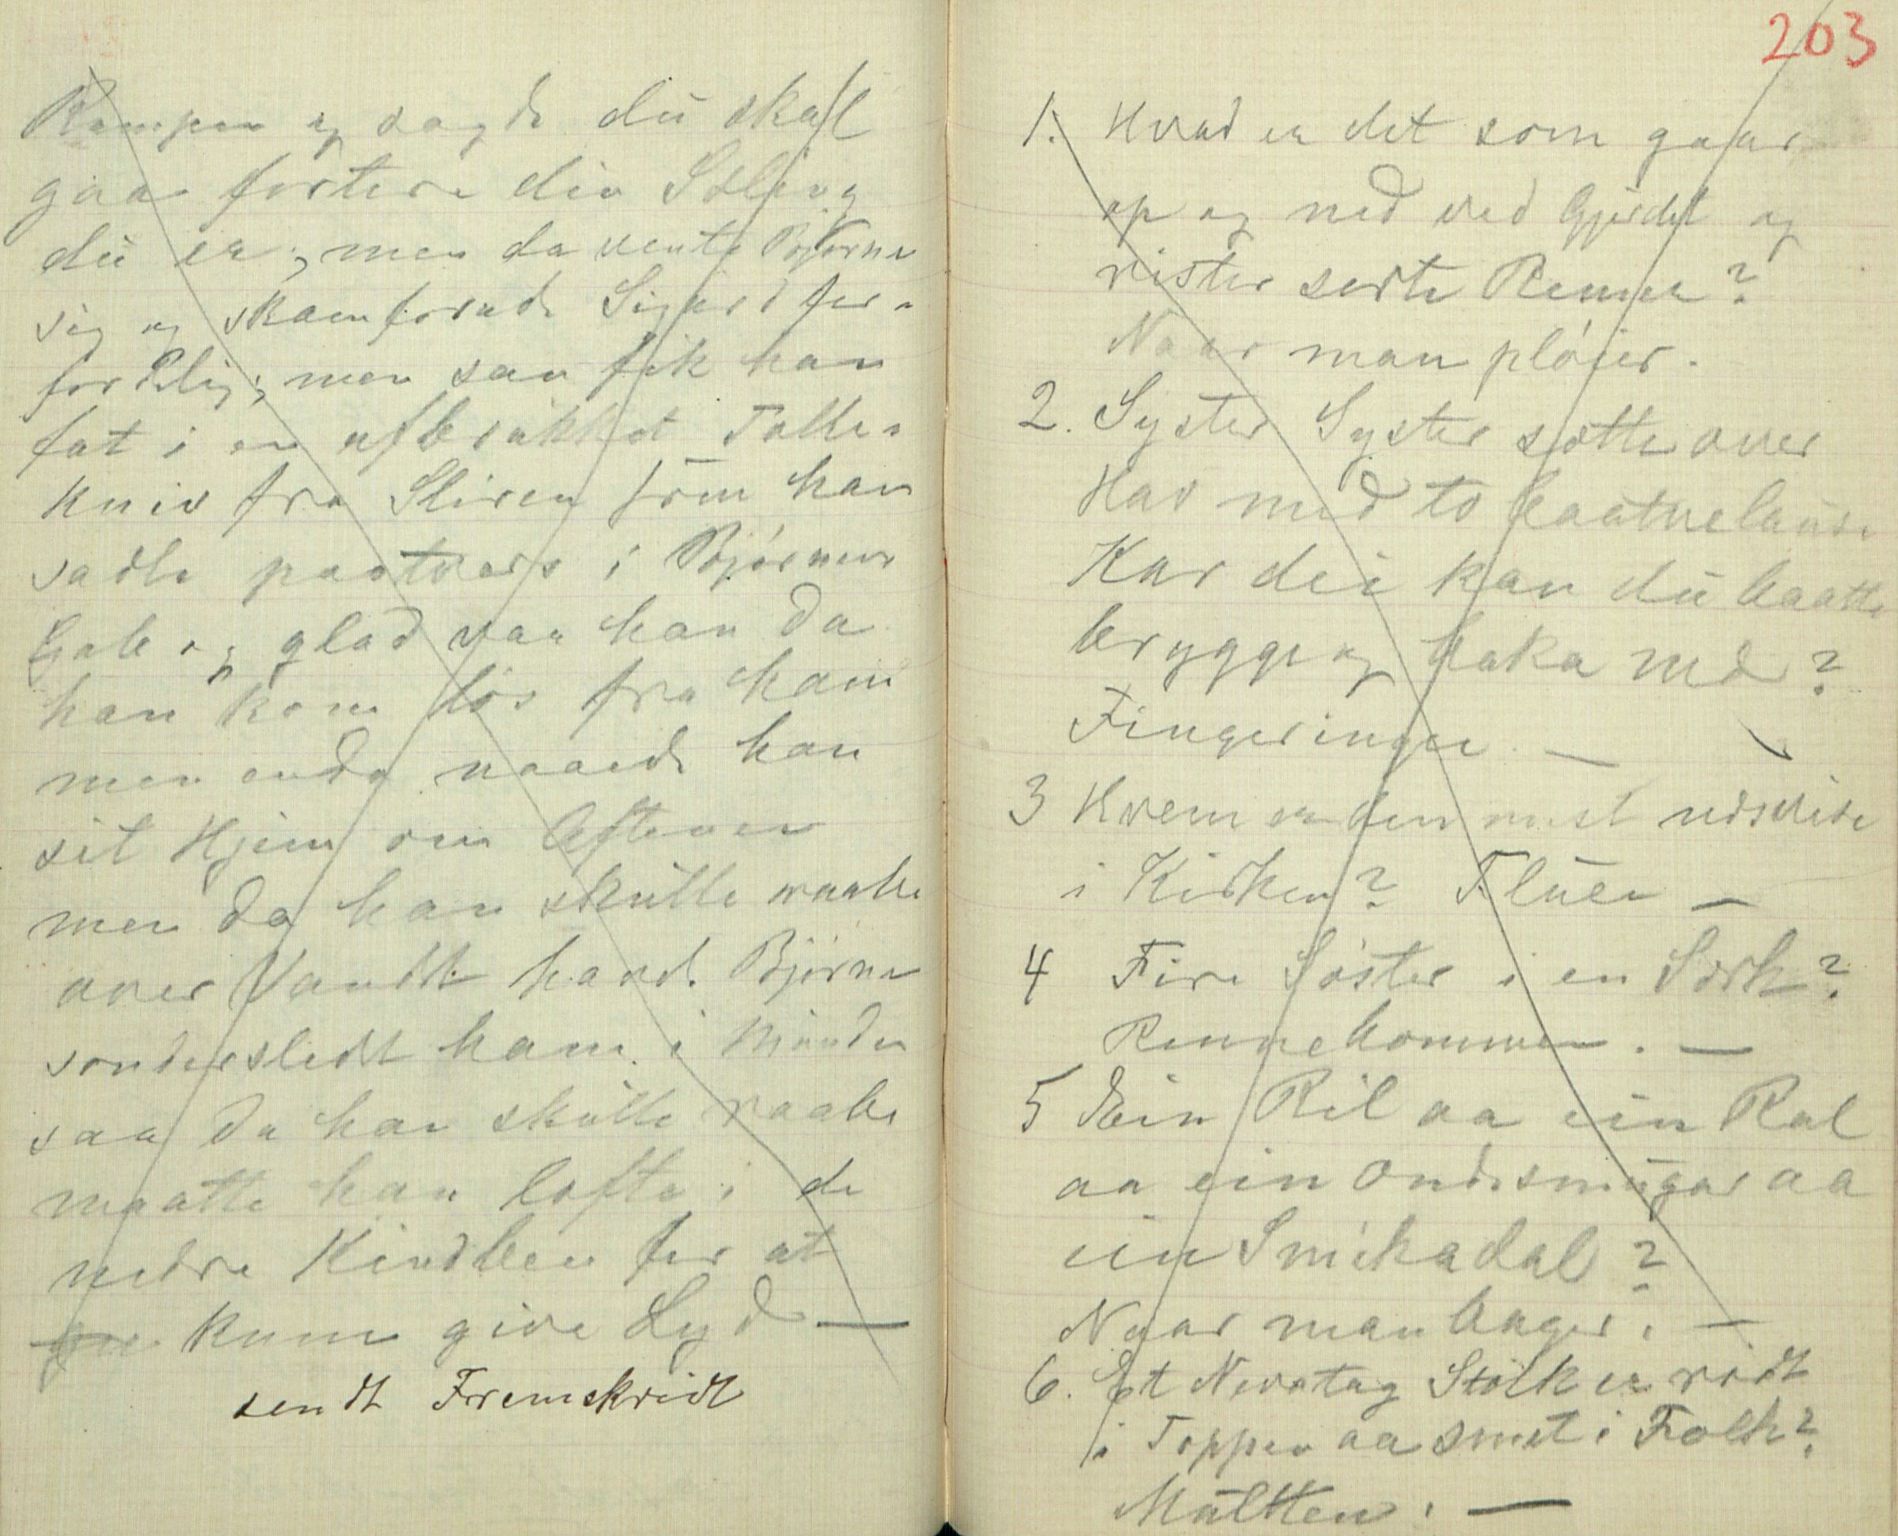 Rumpen og sagde du skal
gaa fortere din Søling
du er, men da vente Bjørne
sig og skamforude Sigurd for-
fordelig; men saa fik han
fat i en afbrukket Tolle-
kniv fra Sliren som han
sadte paatvers i Bjørnens
Gab og glad var han da
han kom løs fra ham
men enda naaede han
sit Hjem om Aftenen
men da han skulle raabe
over Vandet havde Bjørne
sønderslidt ham i Munden
saa da han skulle raabe
maatte han løfte i de
nedre Kindben for at
kune give Lyd —
sendt Fremskridt
203
1. Hvad er det som gaar
op og ned ved Gjerdet og
rister sorte Renner?
Naar man pløier.
2. Syster Syster sotte over
Hav med to baatnelause
Kar dei kan du baatte
brygge og baka med?
Fingeringen. —
3 Hvem er den mest udsvide
i Kirken? Fluen —
4 Fire Søster i en Særk?
Rennebommen. —
5 Ein Ril aa ein Ral
aa ein Ondesmugar aa
ein Smikadal?
Naar man bager. —
6. Et Nevatag Stølk er rødt
i Toppen aa smet i Folk?
Multten. —